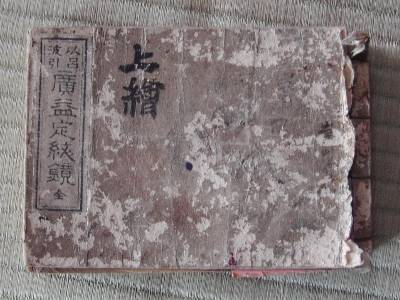 以呂
波引
廣益定紋鏡 全
上繪